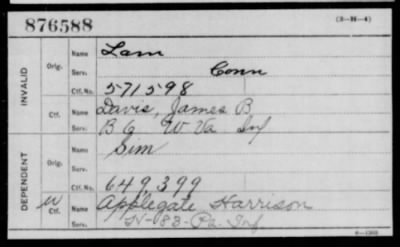 876588
(3-H-4)
INVALID
Orig.
Name Lam
Serv. Conn
Ctf. No. 571598
Ctf.
Name Davis, James B
Serv. B 6 W Va Inf
DEPENDENT
Orig.
Name Sim
Serv.
Ctf. No. 649,399
W Ctf.
Name Applegate Harrison
Serv. H-83-Pa. Inf